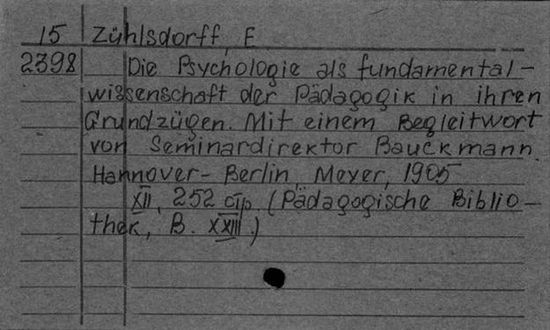 15 Zühlsdorff, E
2398 Die Psychologie als fundamental-
wissenschaft der Pädagogik in ihren
Grundzügen. Mit einem Begleitwort
von Seminardirektor Bauckmann.
Hannover-Berlin, Meyer, 1905
XII, 252 стр. (Pädagogische Biblio-
thek, B. XXIII.)